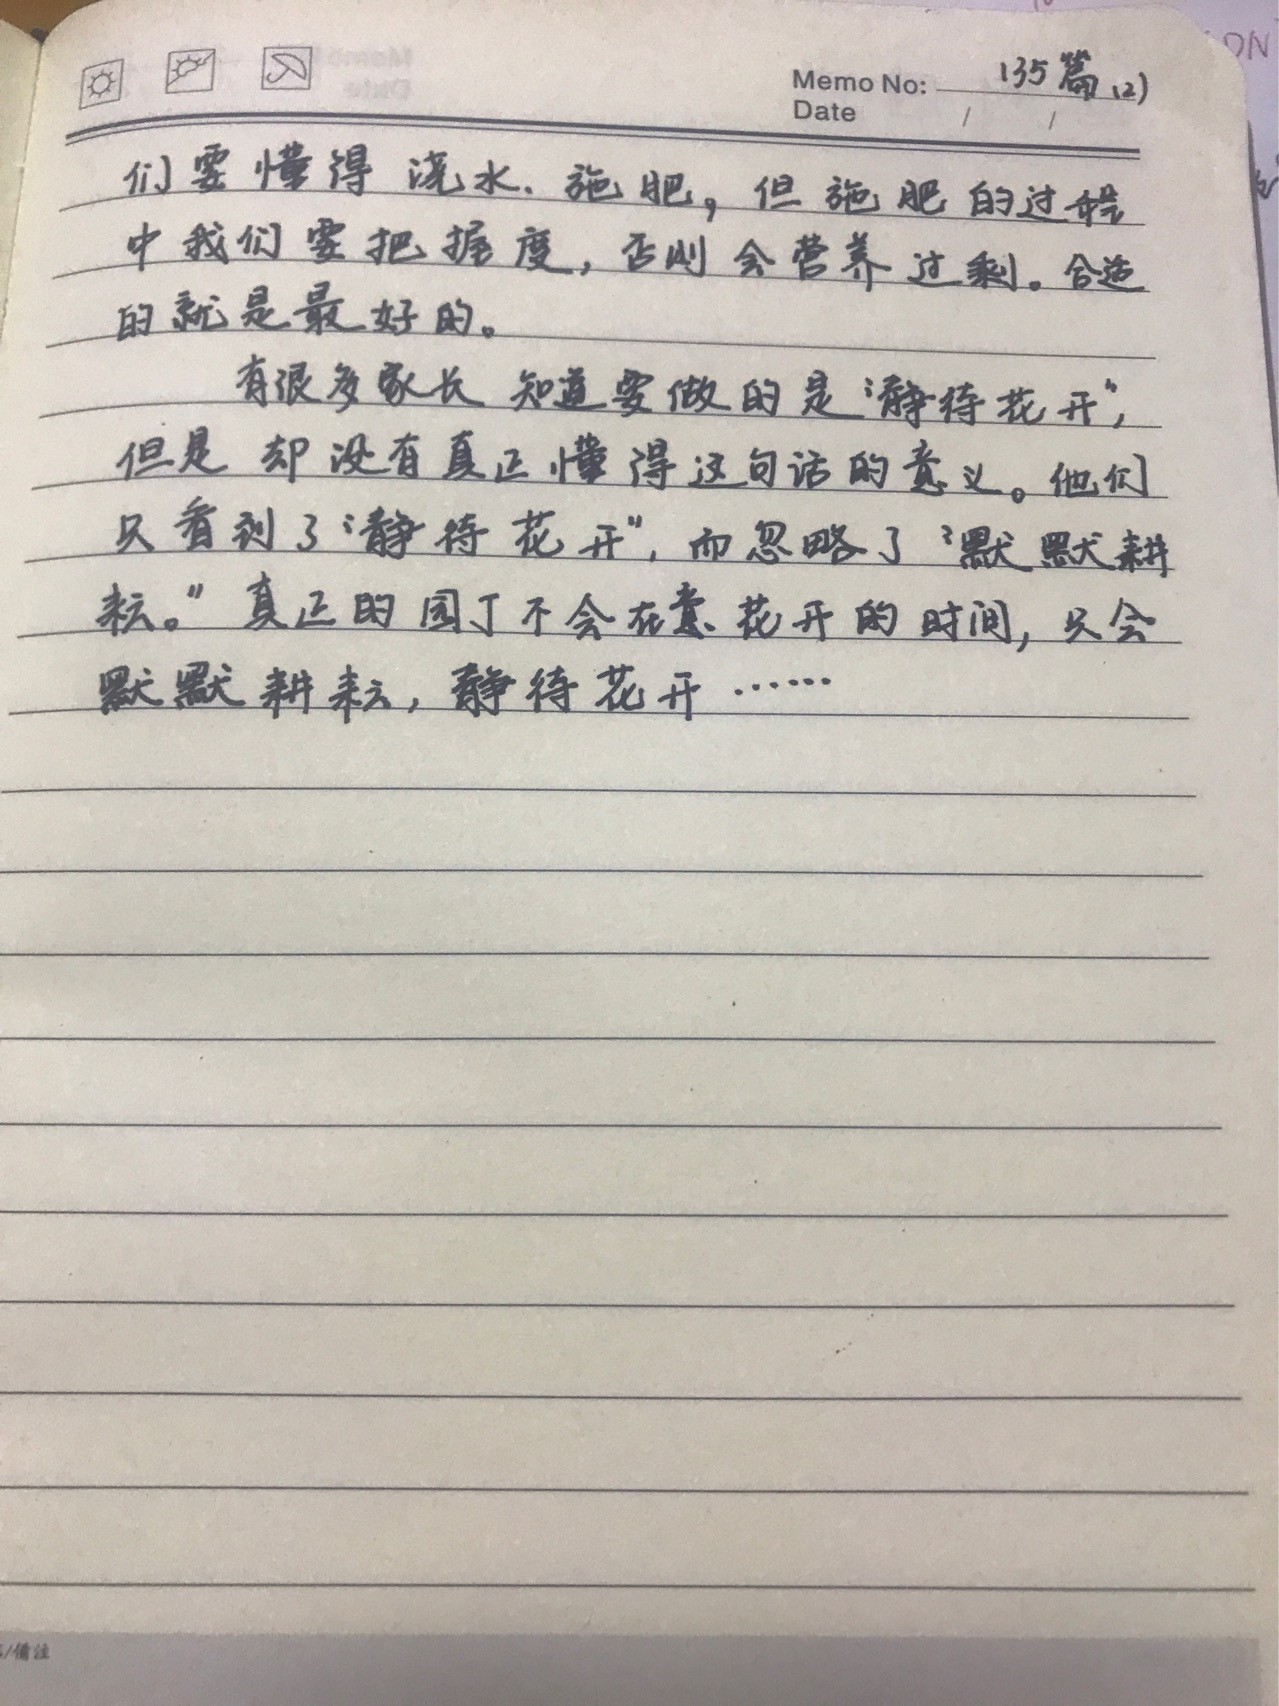 Memo No: 135篇(2)
Date / /
们要懂得浇水、施肥，但施肥的过程
中我们要把握度，否则会营养过剩。合适
的就是最好的。
有很多家长知道要做的是“静待花开”，
但是却没有真正懂得这句话的意义。他们
只看到了“静待花开”，而忽略了“默默耕
耘。”真正的园丁不会在意花开的时间，只会
默默耕耘，静待花开……
/備注